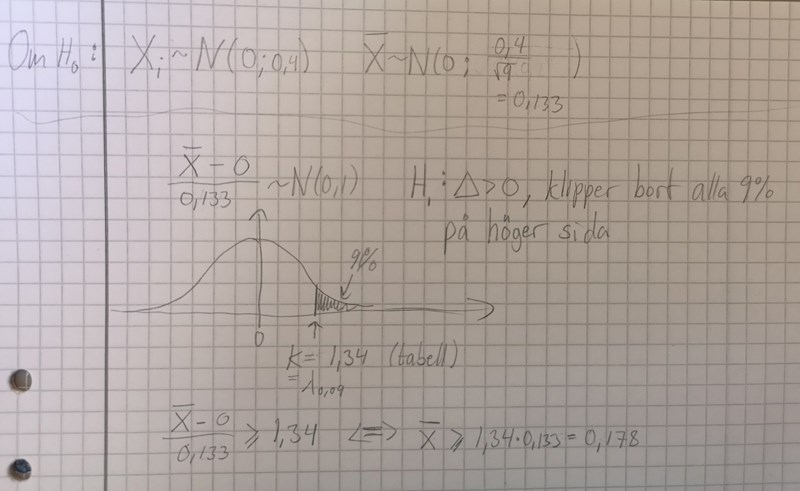 Om H₀: Xᵢ ~ N(0; 0,4) X̄ ~ N(0; 0,4/√9 )
= 0,133
(X̄ - 0)/0,133 ~ N(0,1) H₁: Δ > 0, klipper bort alla 9%
på höger sida
9%
0
K = 1,34 (tabell)
= λ₀,₀₉
(X̄ - 0)/0,133 ⩾ 1,34 <=> X̄ ⩾ 1,34·0,133 = 0,178